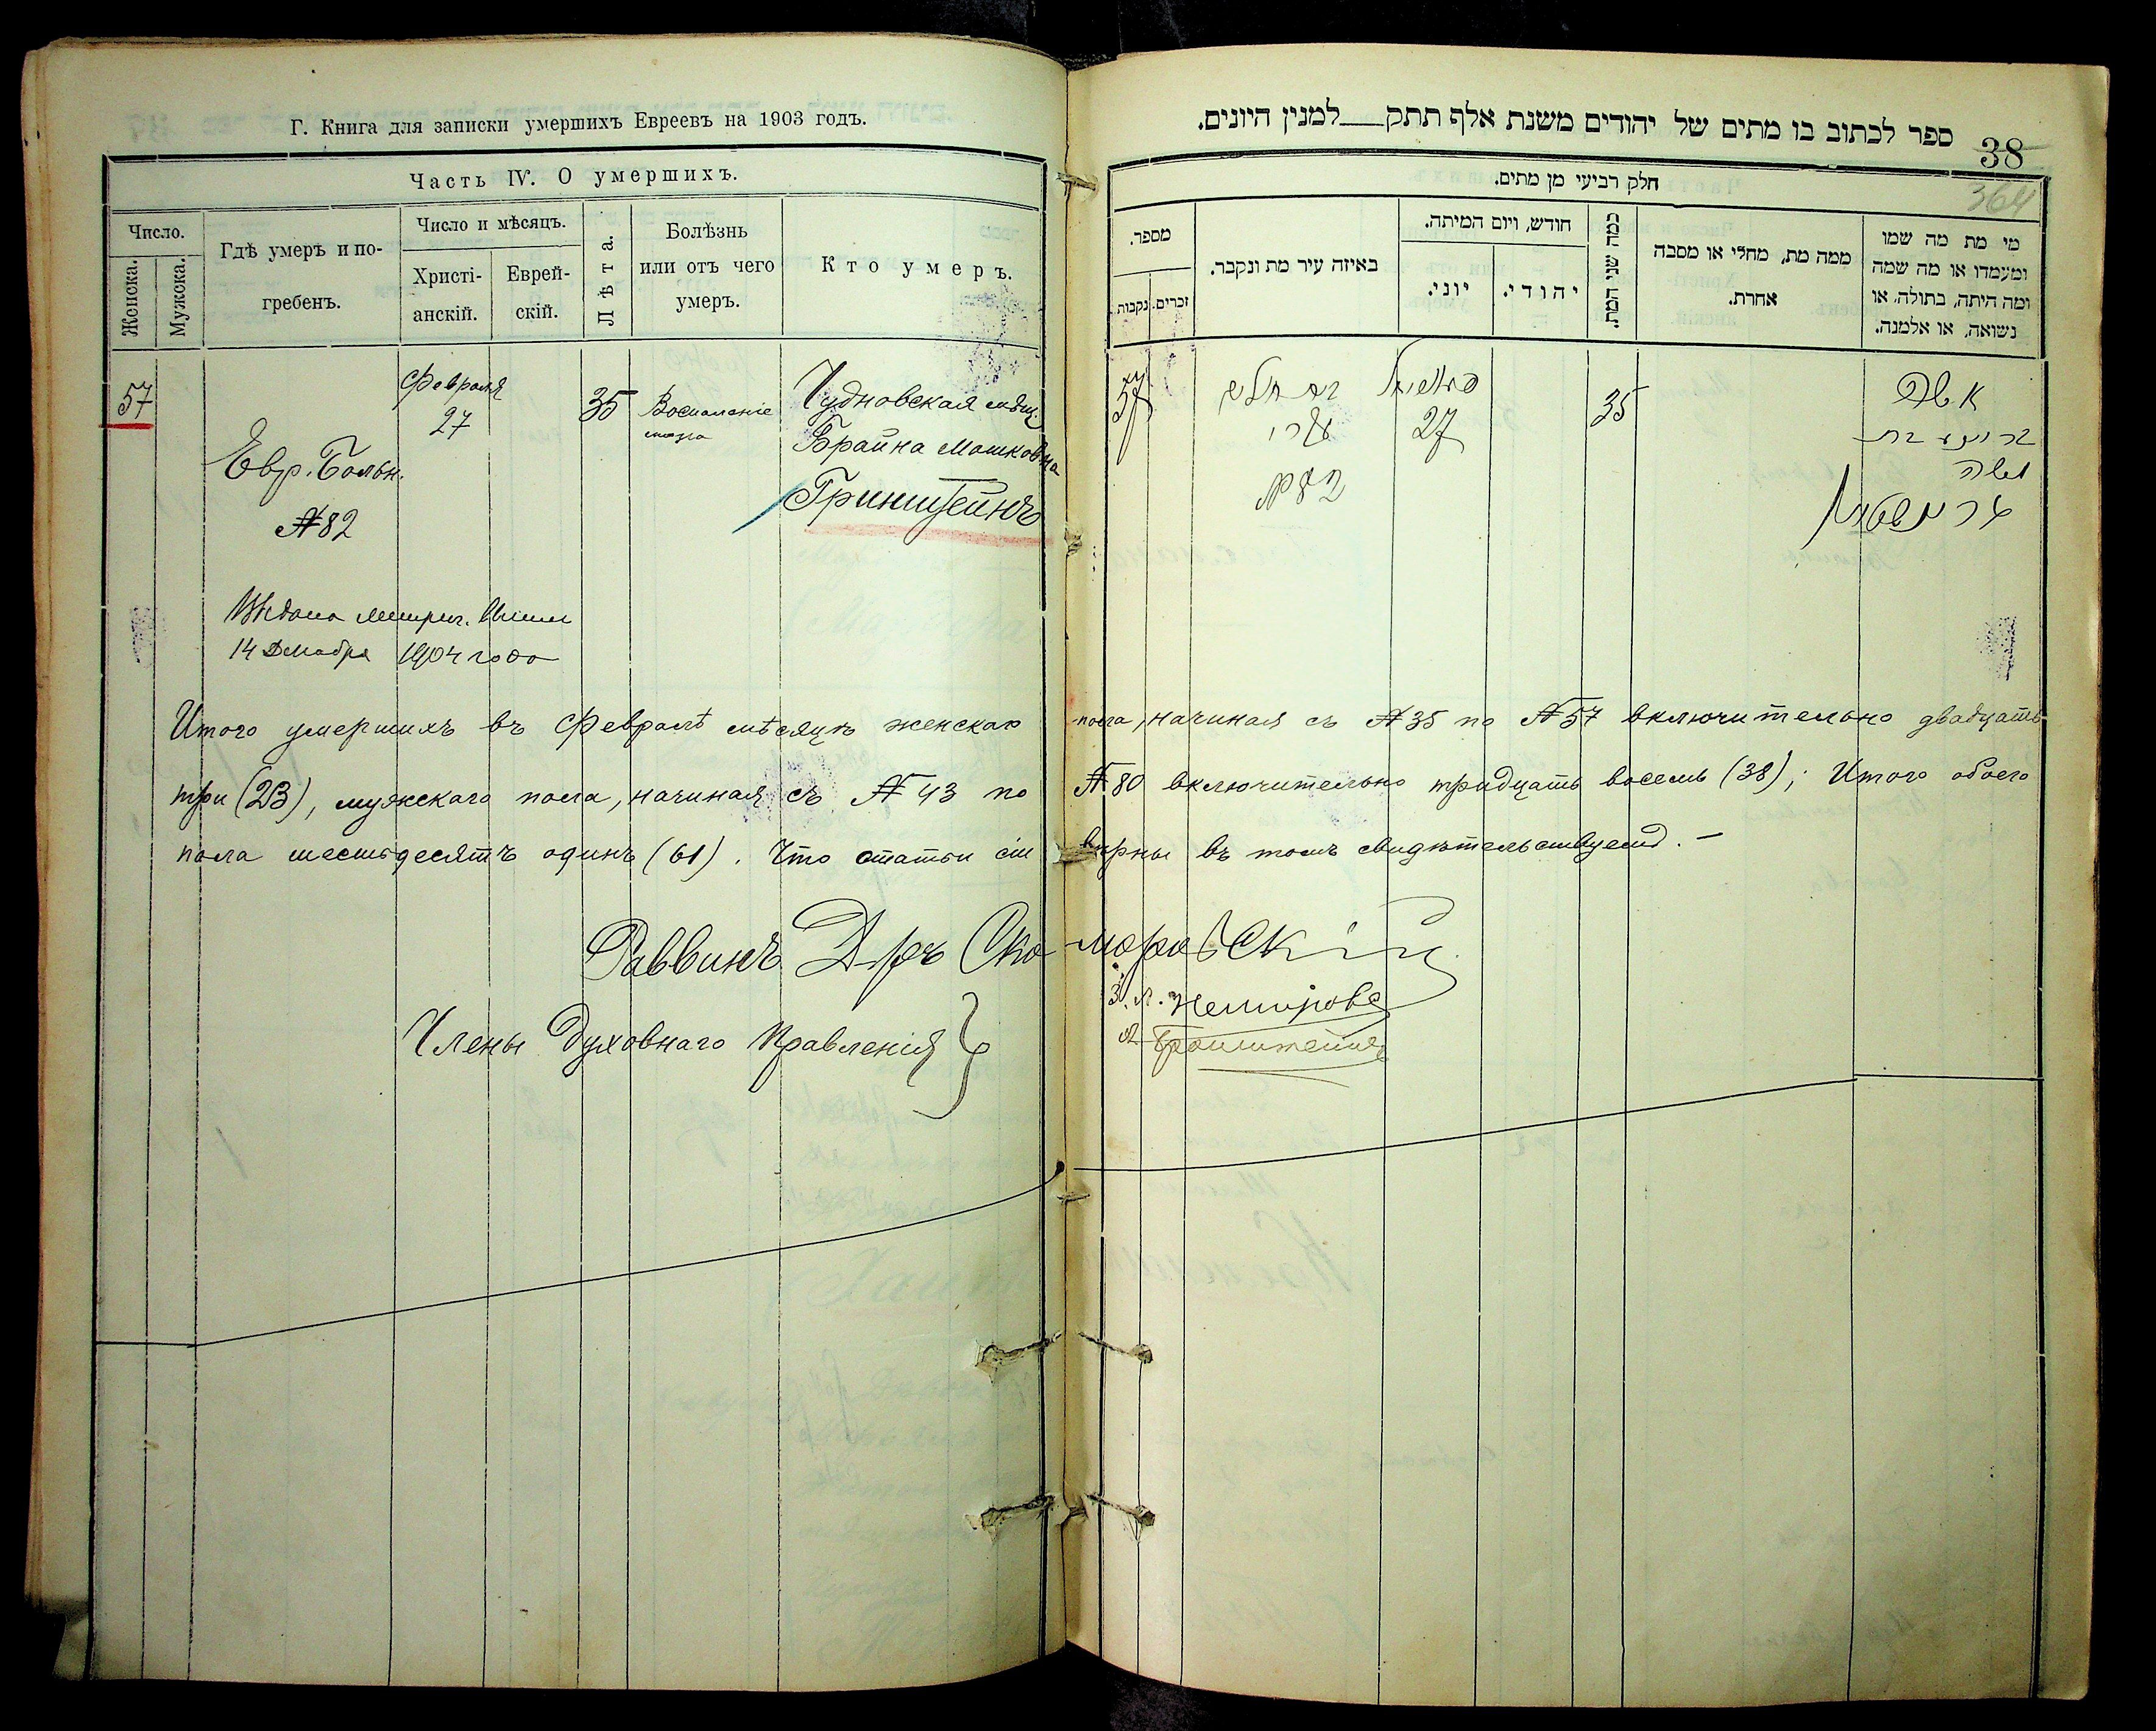 Г. Книга для записки умершихъ Евреевъ на 1903 годъ.
Часть IV. О умершихъ.
Число.
Женска.
Мужска.
Гдѣ умеръ и по-
гребенъ.
Число и мѣсяцъ.
Христі-
анскій.
Еврей-
скій.
Лѣта.
Болѣзнь
или отъ чего
умеръ.
Кто умеръ.
57
Евр. Больн.
№ 82
Февраля
27
35
Воспаленіе
мозга
Чудновская мѣщ.
Брайна Мошковна
Гринштейнъ
14 Декабря 1904 года
ספר לכתוב בו מתים של יהודים משנת אלף תתק למנין היונים.
38
364
חלק רביעי מן מתים.
מספר.
נקבות.
זכרים.
באיזה עיר מת ונקבר.
חודש, ויום המיתה.
יוני.
יהודי.
כמה שני המת.
ממה מת, מחלי או מסבה
אחרת.
מי מת מה שמו
ומעמדו או מה שמה
ומה היתה, בתולה, או
נשואה, או אלמנה.
57
27
№ 82
35
אשה
משה
Итого умершихъ въ Февралѣ мѣсяцѣ женскаго пола, начиная съ № 35 по № 57 включительно двадцать
три (23), мужскаго пола, начиная съ № 43 по № 80 включительно тридцать восемь (38); Итого обоего
пола шестьдесятъ одинъ (61). Что статьи сіи вѣрны въ томъ свидѣтельствуемъ. —
Раввинъ Д-ръ Скоморовскій
Члены Духовнаго Правленія